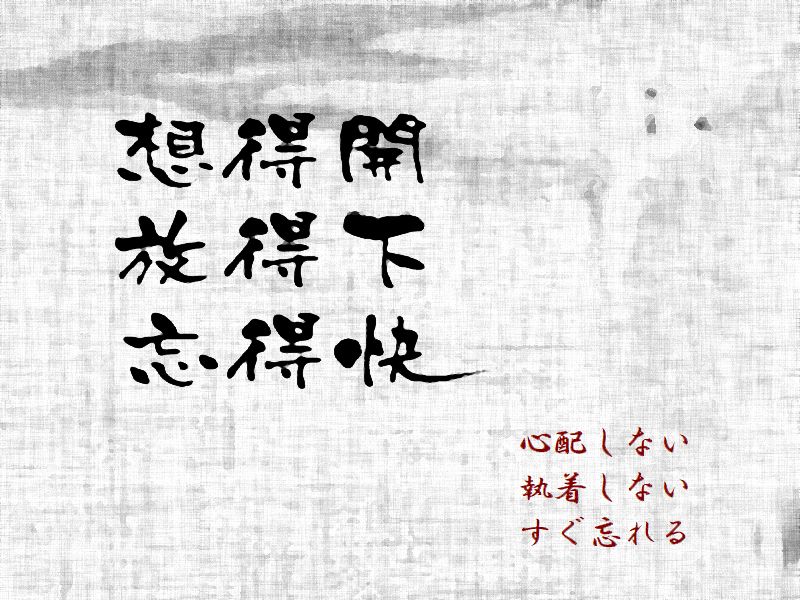 想得開
放得下
忘得快
心配しない
執着しない
すぐ忘れる